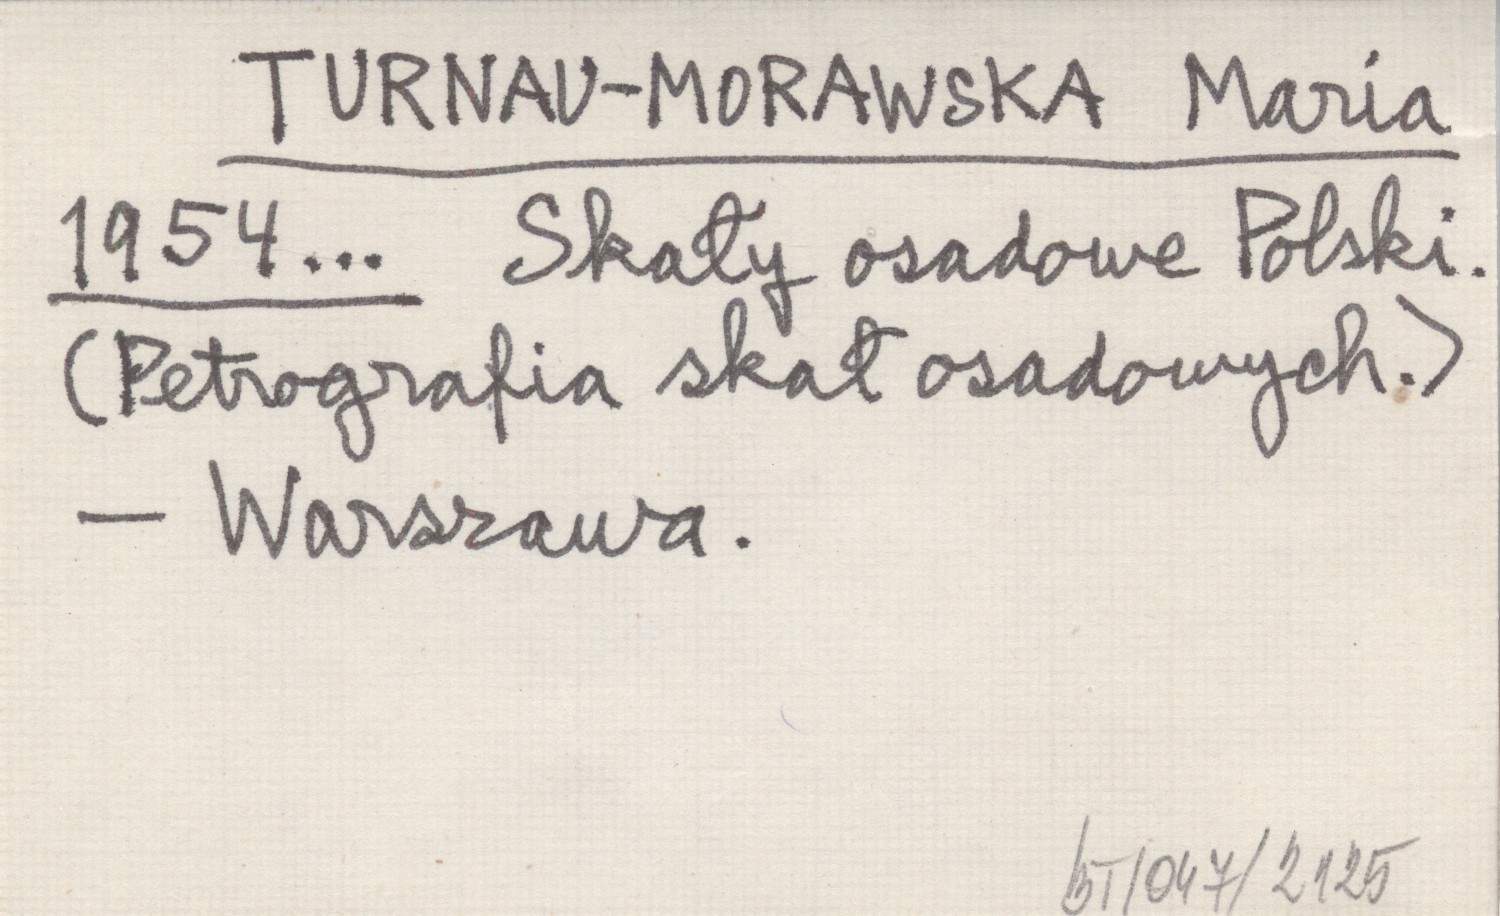 TURNAU-MORAWSKA Maria
1954... Skały osadowe Polski.
(Petrografia skał osadowych.)
— Warszawa.
bT/047/2125